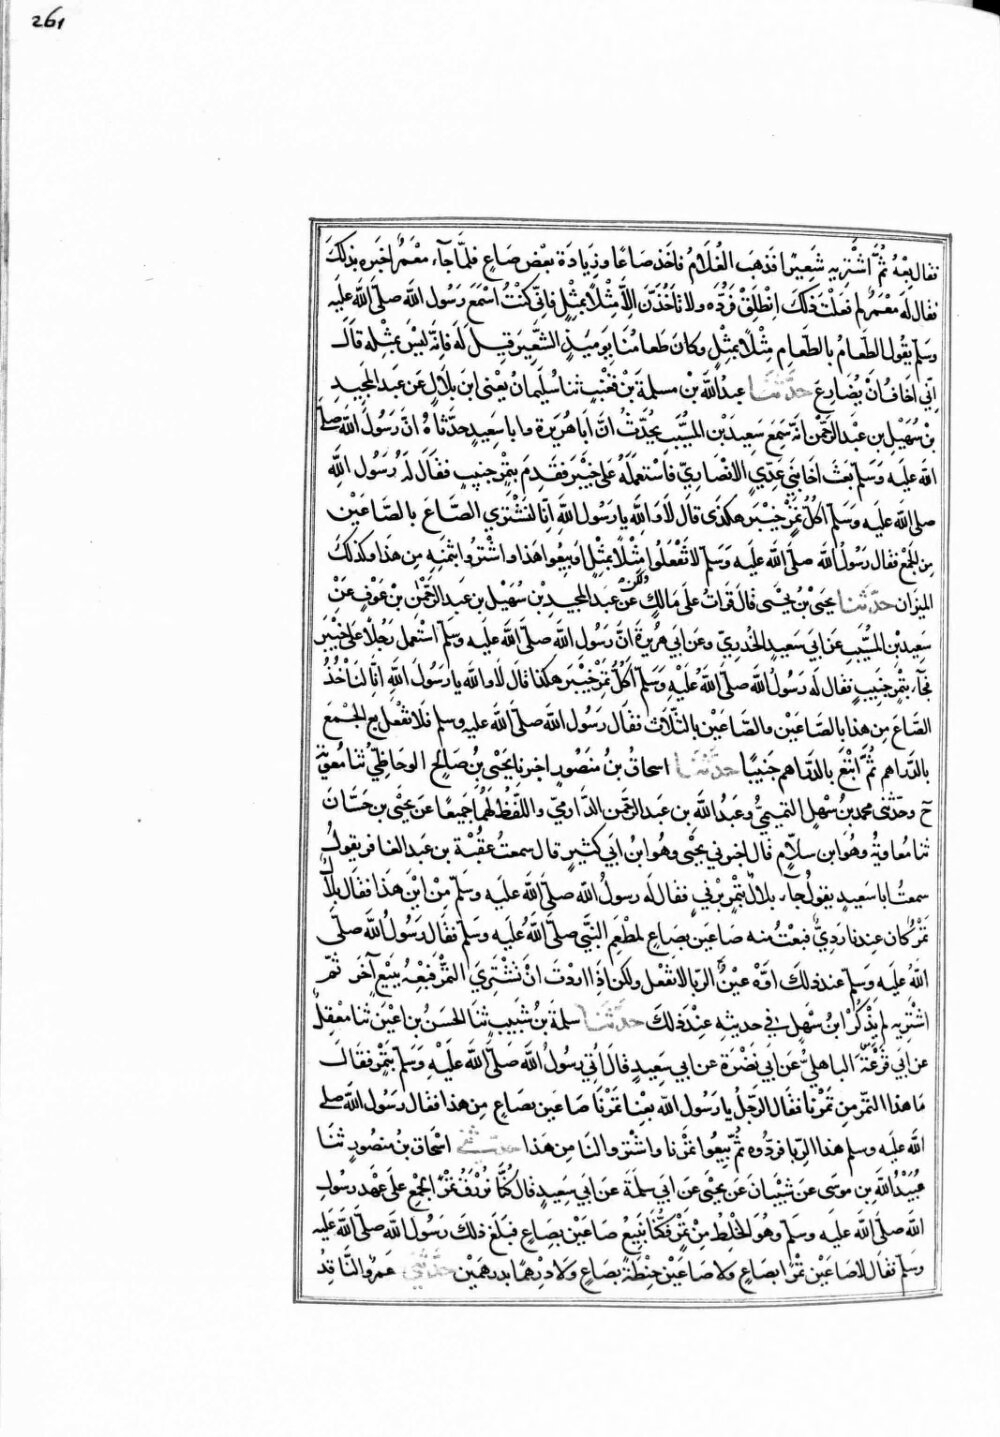 261
فقال بعه ثُمَّ اشْتَرِ بِهِ شَعِيرًا فذهَبَ الغُلَامُ فاخَذ صَاعًا وزِيَادَة بَعْضِ صَاعٍ فلمَّا جآء مَعْمَرٌ اخبَره بذلكَ
فقال لَه مَعْمَرٌ لم فعَلْتَ ذلكَ انْطلِقْ فَرُدَّه ولا تَاخُذَنَّ اِلَّا مِثْلًا بمِثْلٍ فاِنِّي كُنْتُ اسْمَعُ رَسُول اللَّه صلَّى اللَّه علَيه
وسَلَّم يقول الطَعامُ بالطَعامِ مِثْلًا بمِثْلٍ وكانَ طَعامُنَا يومَئِذٍ الشَّعِيرَ قِيلَ لَه فاِنَّه ليْسَ بمِثْلِه قَالَ
اِنِّي اخَافُ اَنْ يُضَارِعَ حَدَّثَنَا عبدُ اللَّه بْن مسلمة بْن قَعْنَبٍ ثنا سُليمانُ يَعْنِى ابن بِلَالٍ عَن عَبد المجِيدِ
بْن سُهَيْل بن عبْد الرَّحْمٰن انَّه سَمِعَ سَعِيدَ بْن المسَيَّبِ يُحَدِّثُ انَّ اَبا هُرَيرة وابا سعِيدٍ حدَّثاهُ انَّ رَسُولَ اللَّه صلى
اللَّه علَيه وَسَلَّم بَعَثَ اخَا بَنِي عَدِيٍّ الانْصَارِيّ فاسْتَعمَلَهُ على خَيْبَر فقَدِمَ بتَمْرٍ جَنِيبٍ فقَالَ لَهُ رَسُولُ اللَّهِ
صلى اللَّه عليه وَسَلَّم اَكُلُّ تَمْرِ خَيْبَر هكَذَى قالَ لا وَاللَّه يا رَسُولَ اللَّه اِنَّا لنَشْتَري الصَّاعَ بالصَّاعَيْن
مِن الجَمْع فقال رَسُولُ اللَّه صلَّى اللَّه علَيه وَسَلَّم لا تَفْعَلُوا مِثْلًا بمِثْلٍ او بِيعُوا هَذا واشْتَرُوا بثَمَنِه مِن هَذا وكذلكَ
الميْزان حَدَّثَنَا يَحيَى بْنُ يَحْيَى قالَ قَراتُ على مَالكٍ عَنْ عبد المجِيد بْن سُهَيْل بن عَبد الرَّحْمٰن بْن عَوْفٍ عَنْ
سَعِيد بْن المُسَيَّبِ عَن ابي سَعِيدٍ الخدريّ وعَن ابي هُرَيرةَ انَّ رَسُول اللَّه صلَّى اللَّه علَيه وسلَّم اسْتَعمل رَجُلًا على خَيْبَر
فجآء بتَمْرٍ جَنِيبٍ فقال لَه رَسُولُ اللَّه صلَّى اللَّهُ عَلَيْهِ وَسَلَّم اَكُلُّ تَمْرِ خَيْبَر هكذا قالَ لا واللَّه يا رَسُولَ اللَّهِ اِنَّا لنَاْخُذُ
الصَّاعَ مِن هذا بالصَّاعَيْن والصَّاعَيْن بالثَّلَاثِ فقَال رَسُولُ اللَّه صلَّى اللَّه عليه وسلم فلا تَفْعل بِع الجَمْعَ
بالدَّراهِم ثُمَّ ابْتَعْ بالدَّراهم جَنِيبًا حَدَّثَنَا اسحاق بْن مَنصُورٍ اخبرنا يَحْيَى بْن صَالح الوحَاظيّ ثنا مُعويَة
ح وحدّثنى محمد بن سَهْلٍ التميميُّ وعَبْدُ اللَّه بن عبد الرحْمٰن الدَّارِميّ واللَّفظُ لَهُمَا جَمِيعًا عَن يحْيَى بن حَسَّان
ثنا مُعاويَةُ وهُوَ ابن سلَّامٍ قال اخبرني يحْيَى وهُو ابنُ ابي كَثيرٍ قال سمعتُ عُقْبَة بن عَبد الغافر يقولُ
سمعتُ ابا سَعيدٍ يقولُ جآء بلالٌ بتَمْرٍ بَرْنِيٍّ فقال لَه رسولُ اللَّه صلى اللَّهُ علَيه وَسَلَّم مِنْ اَيْنَ هَذا فقَال بلالٌ
تَمْرٌ كان عِندنا رَدِيٌّ فبعْتُ منه صَاعَين بصَاعٍ لمَطْعَم النَّبيّ صلى اللَّهُ علَيه وَسَلَّم فقَالَ رَسُولُ اللَّه صلَّى
اللَّه علَيه وسَلَّم عندَ ذلكَ اوَّه عَيْنُ الرِّبا لا تَفْعَل ولكن اِذَا اردْتَ انْ تَشْتَرِيَ التَمْرَ فبِعْه ببَيْعٍ آخَر ثُمَّ
اشْتَرِ به لم يَذْكُر ابنُ سَهْلٍ في حديثِه عِنْدَ ذلكَ حَدَّثَنَا سلمة بْنُ شَبِيبٍ ثنا الحَسَنُ بن اَعْيَن ثنا مَعْقِلٌ
عن ابي قَزْعَةَ الباهليِّ عَن ابي نَضْرَة عن ابي سَعِيدٍ قالَ اُتِيَ رسُولُ اللَّه صلَّى اللَّه عَلَيْهِ وَسَلَّم بتَمْرٍ فقَالَ
مَا هذا التَّمْر مِن تَمْرِنا فقال الرَّجُلُ يا رَسُولَ اللَّه بِعْنا تَمْرَنَا صَاعَين بصَاعٍ مِن هذا فقال رَسُولُ اللَّه صلى
اللَّه علَيه وسلم هذا الرِّبا فردُّوه ثُمَّ بِيعُوا تمْرَنا واشْتَروا لنَا مِن هَذا حَدَّثَنِي اسْحَاق بنُ منصُورٍ ثنَا
عُبَيْدُ اللَّه بن مُوسَى عَن شَيْبَان عَن يَحْيَى عَن ابي سَلَمَة عَن ابي سَعِيدٍ قالَ كُنَّا نُرْزَقُ تَمْرَ الجَمْع على عَهْد رَسُولِ
اللَّه صلَّى اللَّه علَيه وسَلَّم وهُو الخِلْطُ مِنْ التَّمْر فكُنَّا نَبِيعُ صَاعَيْن بصَاعٍ فبَلَغَ ذلكَ رَسُولَ اللَّه صلَّى اللَّه علَيه
وسَلَّم فقَال لا صَاعَيْن تَمْرًا بصَاعٍ ولا صَاعَيْن حِنْطَةً بصَاعٍ ولا دِرْهَمًا بدِرهَمَيْن حَدَّثَنِي عَمرٌو النَّاقِدُ